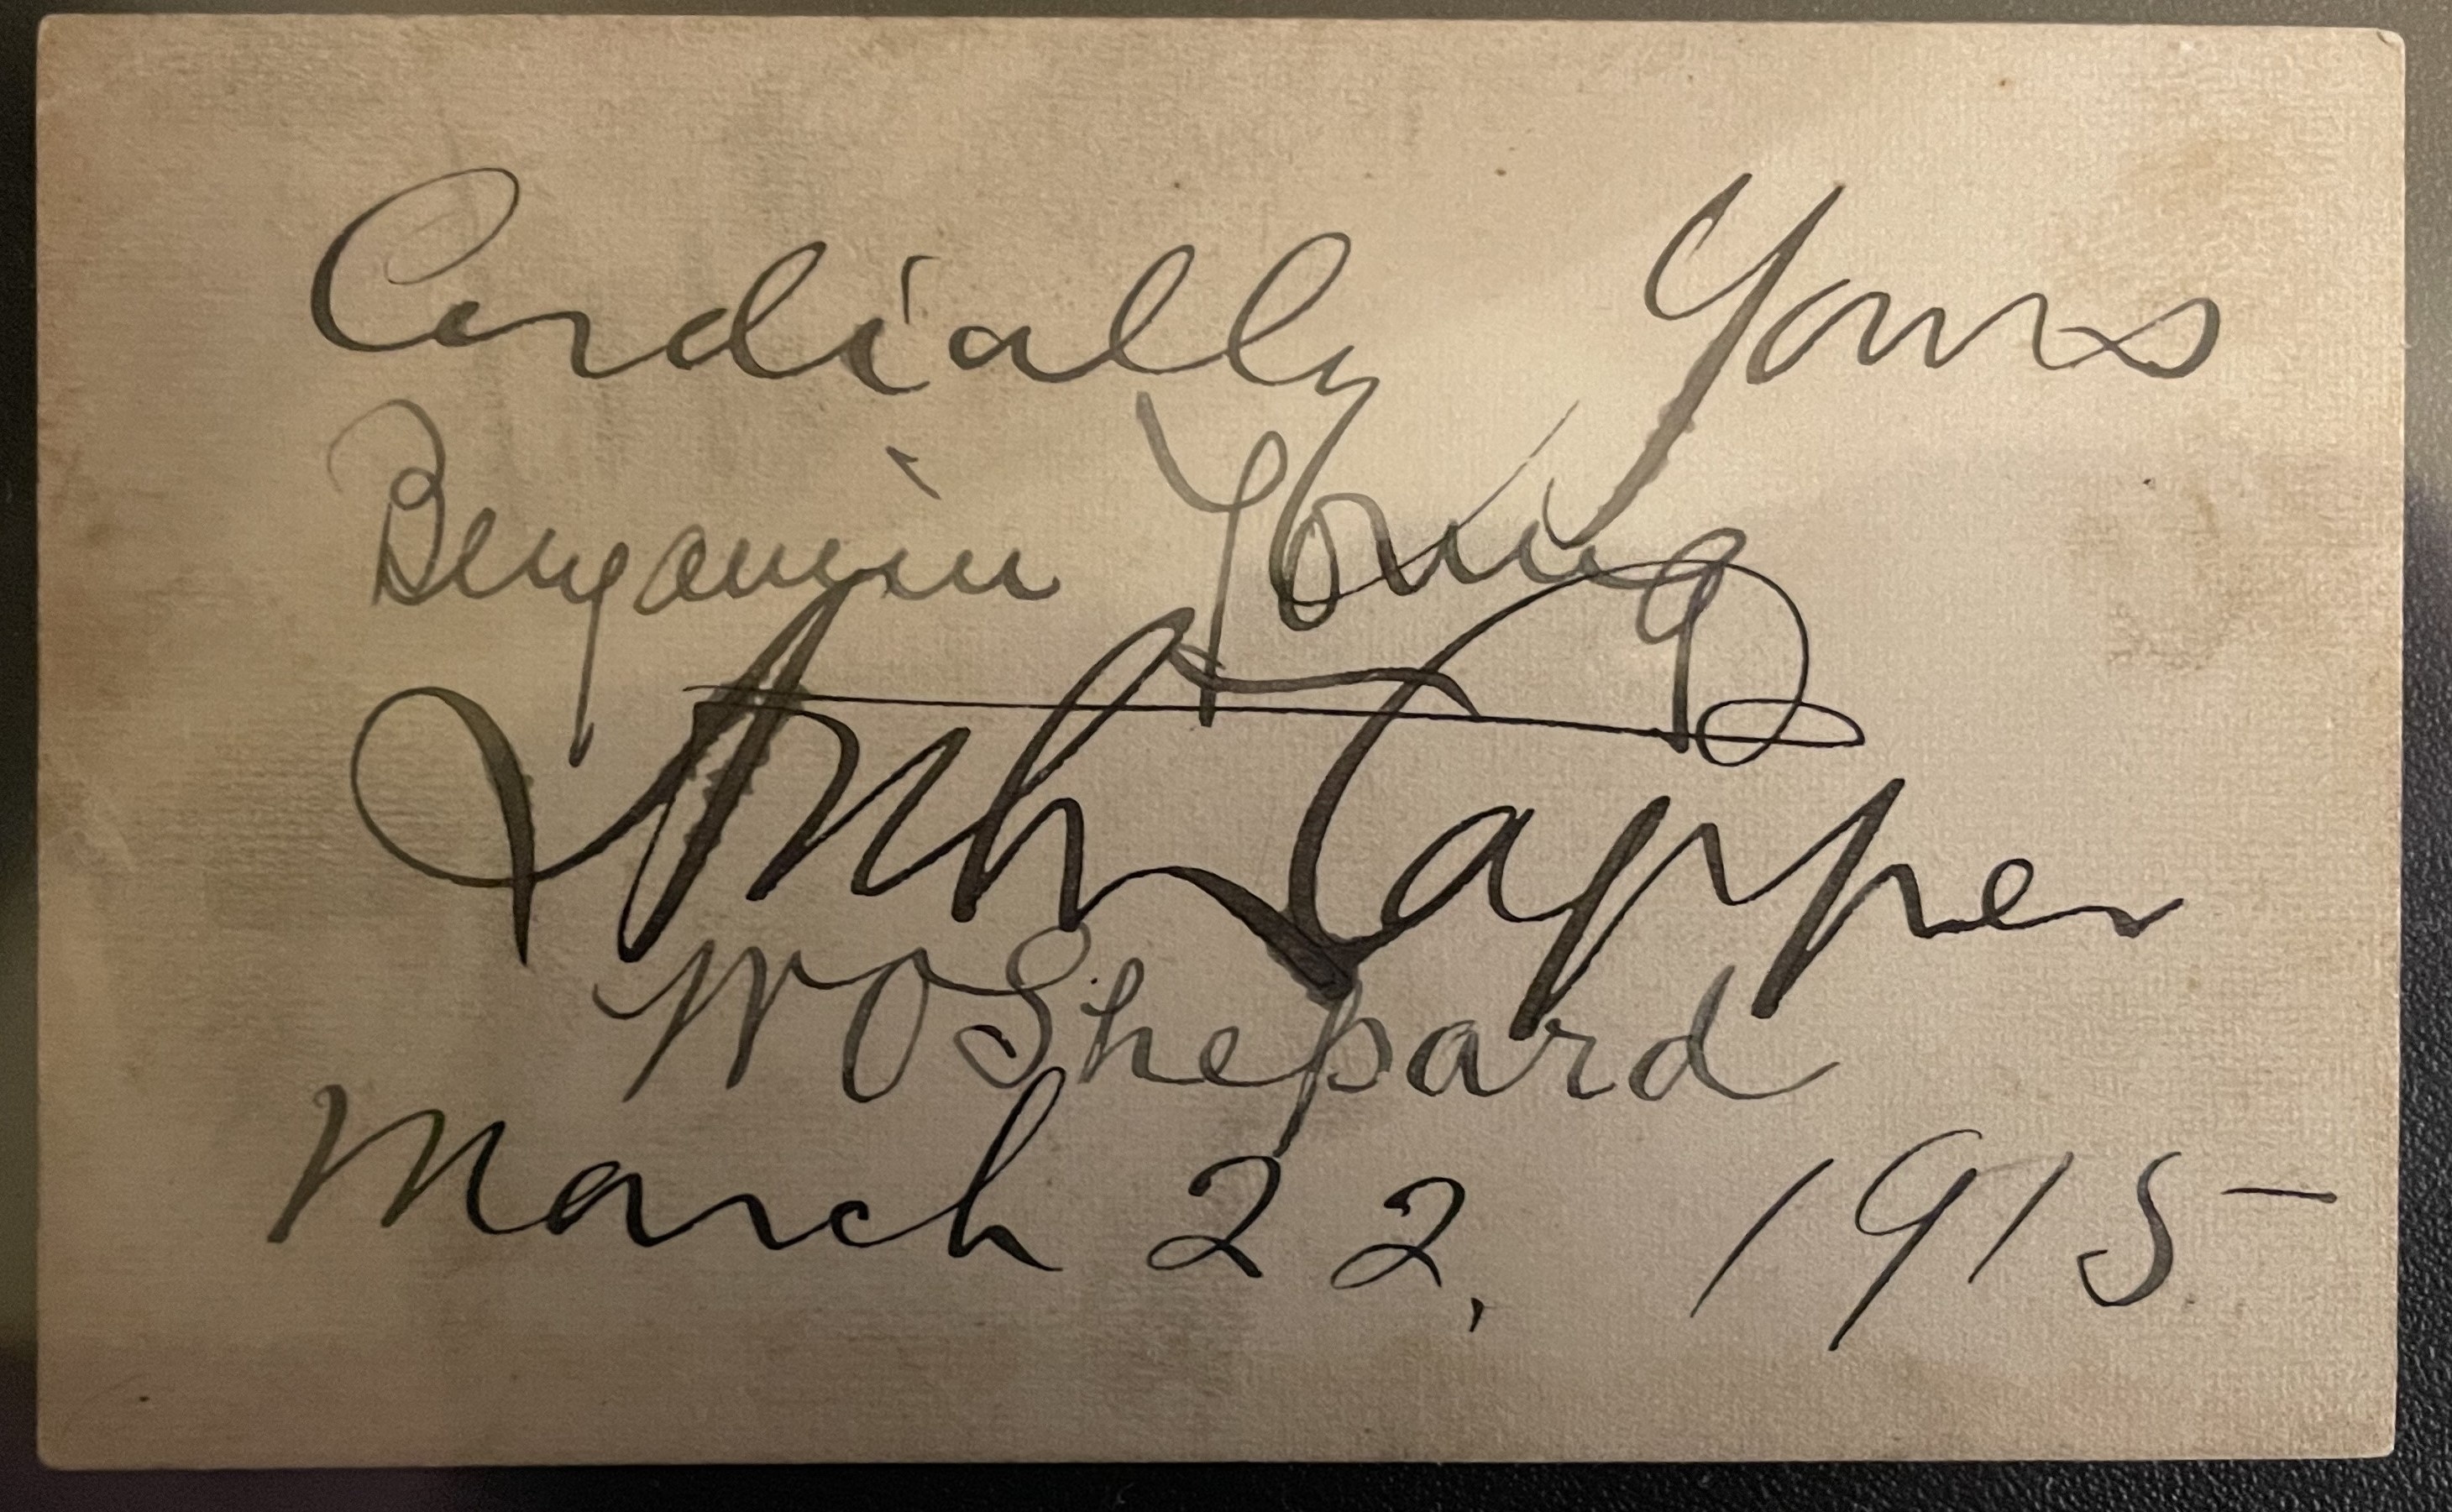 Cordially Yours
Benjamin Young
Arthur Capper
W O Shepard
March 22, 1915